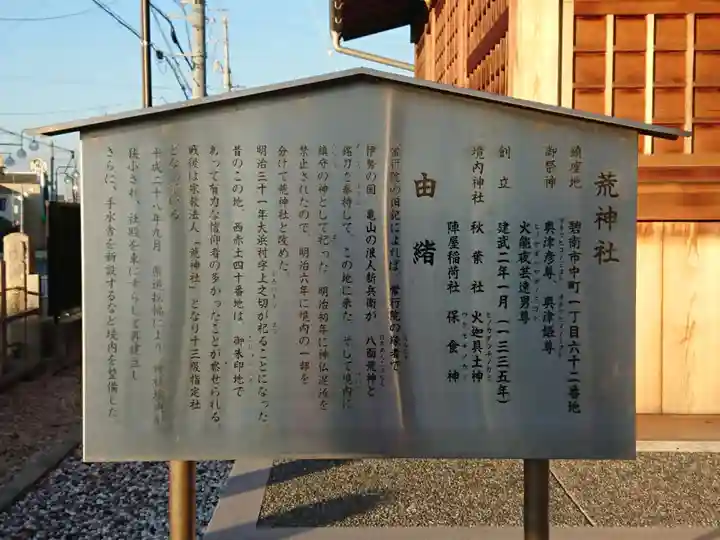 荒神社
鎮座地　碧南市中町一丁目六十二番地
御祭神　奥津彦尊、奥津媛尊
火産夜芸速男尊
創立　建武二年一月（一三三五年）
境内神社　秋葉社　火迦具土神
陣屋稲荷社　保食神
由緒
常行院の旧記によれば、常行院の縁者で
伊勢の国　亀山の浪人新兵衛が　八面荒神と
を奉持して、この地に来た　そして境内に
鎮守の神として祀った　明治初年に神仏混淆を
禁止されたので、明治六年に境内の一部を
分けて荒神社と改めた。
明治三十一年大浜村字上之切が祀ることになった
昔のこの地　西赤土四十番地は、御朱印地で
あって有力な信仰者の多かったことが察せられる
戦後は宗教法人「荒神社」となり十三級指定社
となっている
平成二十八年九月　県道拡幅により、神社境内が
狭小され、社殿を東に寄らして再建立し
さらに、手水舎を新設するなど境内を整備した。